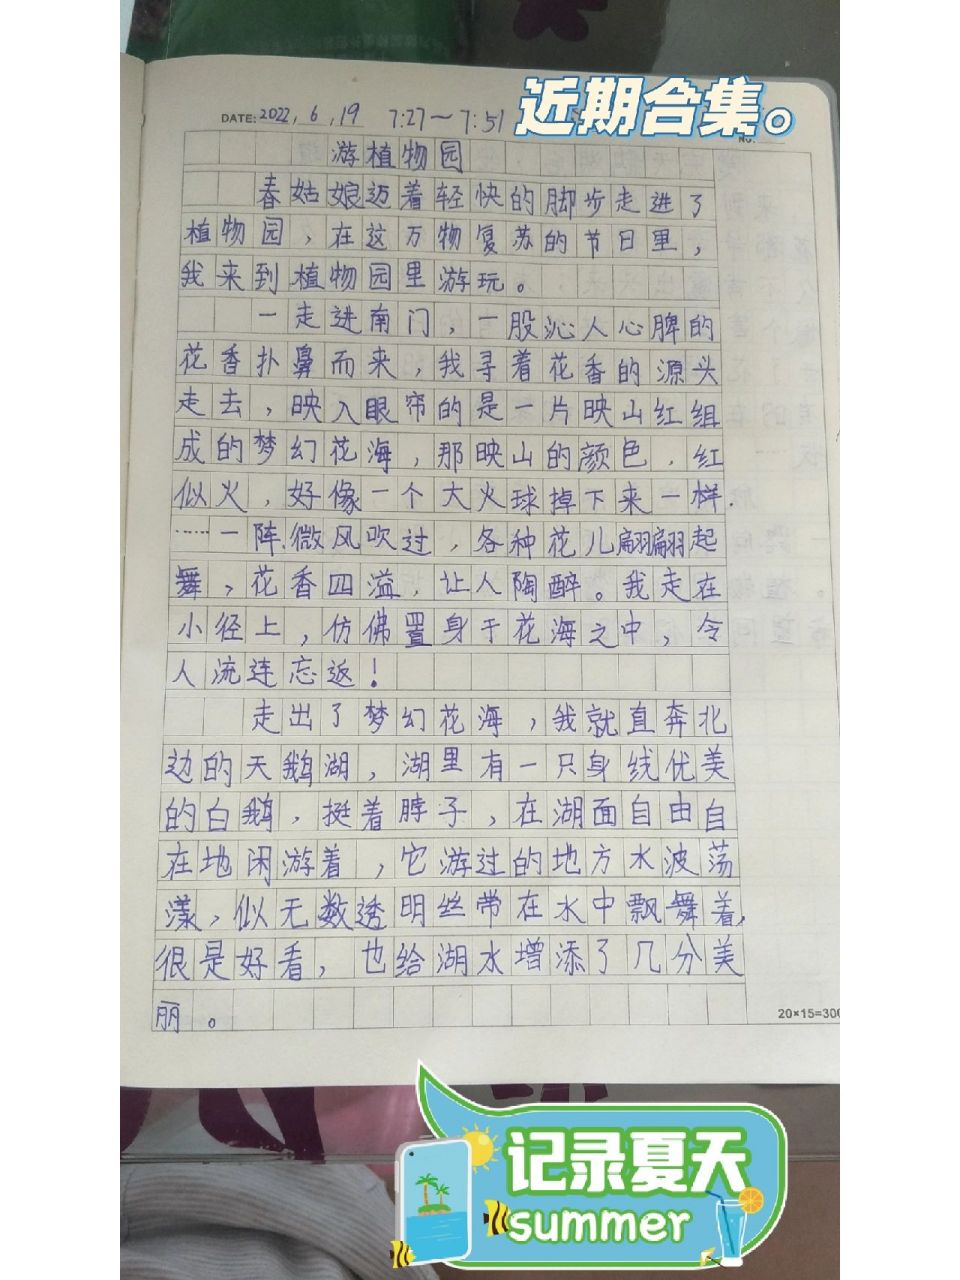 近期合集。
DATE: 2022, 6, 19 7:27～7:51
NO.
游植物园
春姑娘迈着轻快的脚步走进了
植物园，在这万物复苏的节日里，
我来到植物园里游玩。
一走进南门，一股沁人心脾的
花香扑鼻而来，我寻着花香的源头
走去，映入眼帘的是一片映山红组
成的梦幻花海，那映山的颜色，红
似火，好像一个大火球掉下来一样.
……一阵.微风吹过，各种花儿翩翩起
舞，花香四溢，让人陶醉。我走在
小径上，仿佛置身于花海之中，令
人流连忘返！
走出了梦幻花海，我就直奔北
边的天鹅湖，湖里有一只身线优美
的白鹅，挺着脖子，在湖面自由自
在地闲游着，它游过的地方水波荡
漾，似无数透明丝带在水中飘舞着，
很是好看，也给湖水增添了几分美
丽。
20×15=300
记录夏天
summer